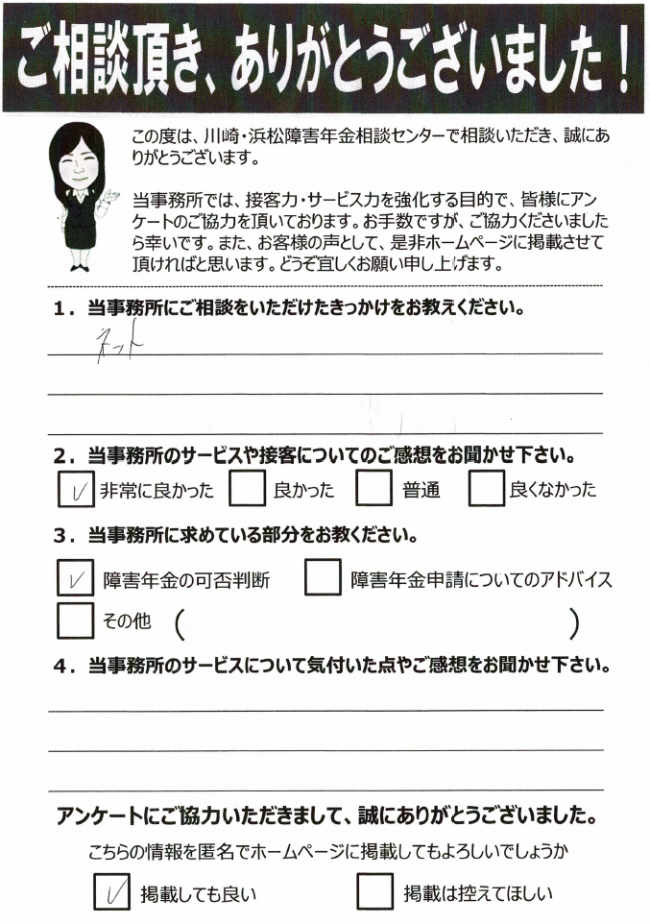 ご相談頂き、ありがとうございました！
この度は、川崎・浜松障害年金相談センターで相談いただき、誠にあ
りがとうございます。
当事務所では、接客力・サービス力を強化する目的で、皆様にアン
ケートのご協力を頂いております。お手数ですが、ご協力くださいました
ら幸いです。また、お客様の声として、是非ホームページに掲載させて
頂ければと思います。どうぞ宜しくお願い申し上げます。
１．当事務所にご相談をいただけたきっかけをお教えください。
ネット
２．当事務所のサービスや接客についてのご感想をお聞かせ下さい。
✓ 非常に良かった 良かった 普通 良くなかった
３．当事務所に求めている部分をお教ください。
✓ 障害年金の可否判断 障害年金申請についてのアドバイス
その他 （ ）
４．当事務所のサービスについて気付いた点やご感想をお聞かせ下さい。
アンケートにご協力いただきまして、誠にありがとうございました。
こちらの情報を匿名でホームページに掲載してもよろしいでしょうか
✓ 掲載しても良い 掲載は控えてほしい